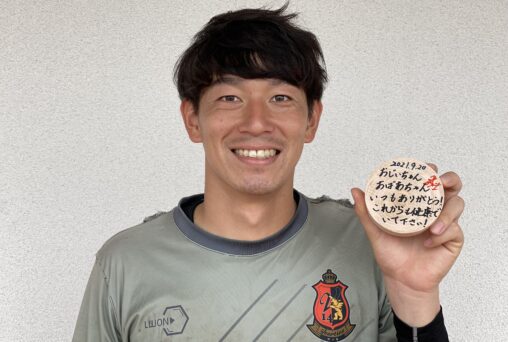 2021.9.20
おじいちゃん
おばあちゃん
いつもありがとう!
これからも健康で
いて下さい!
LEGION